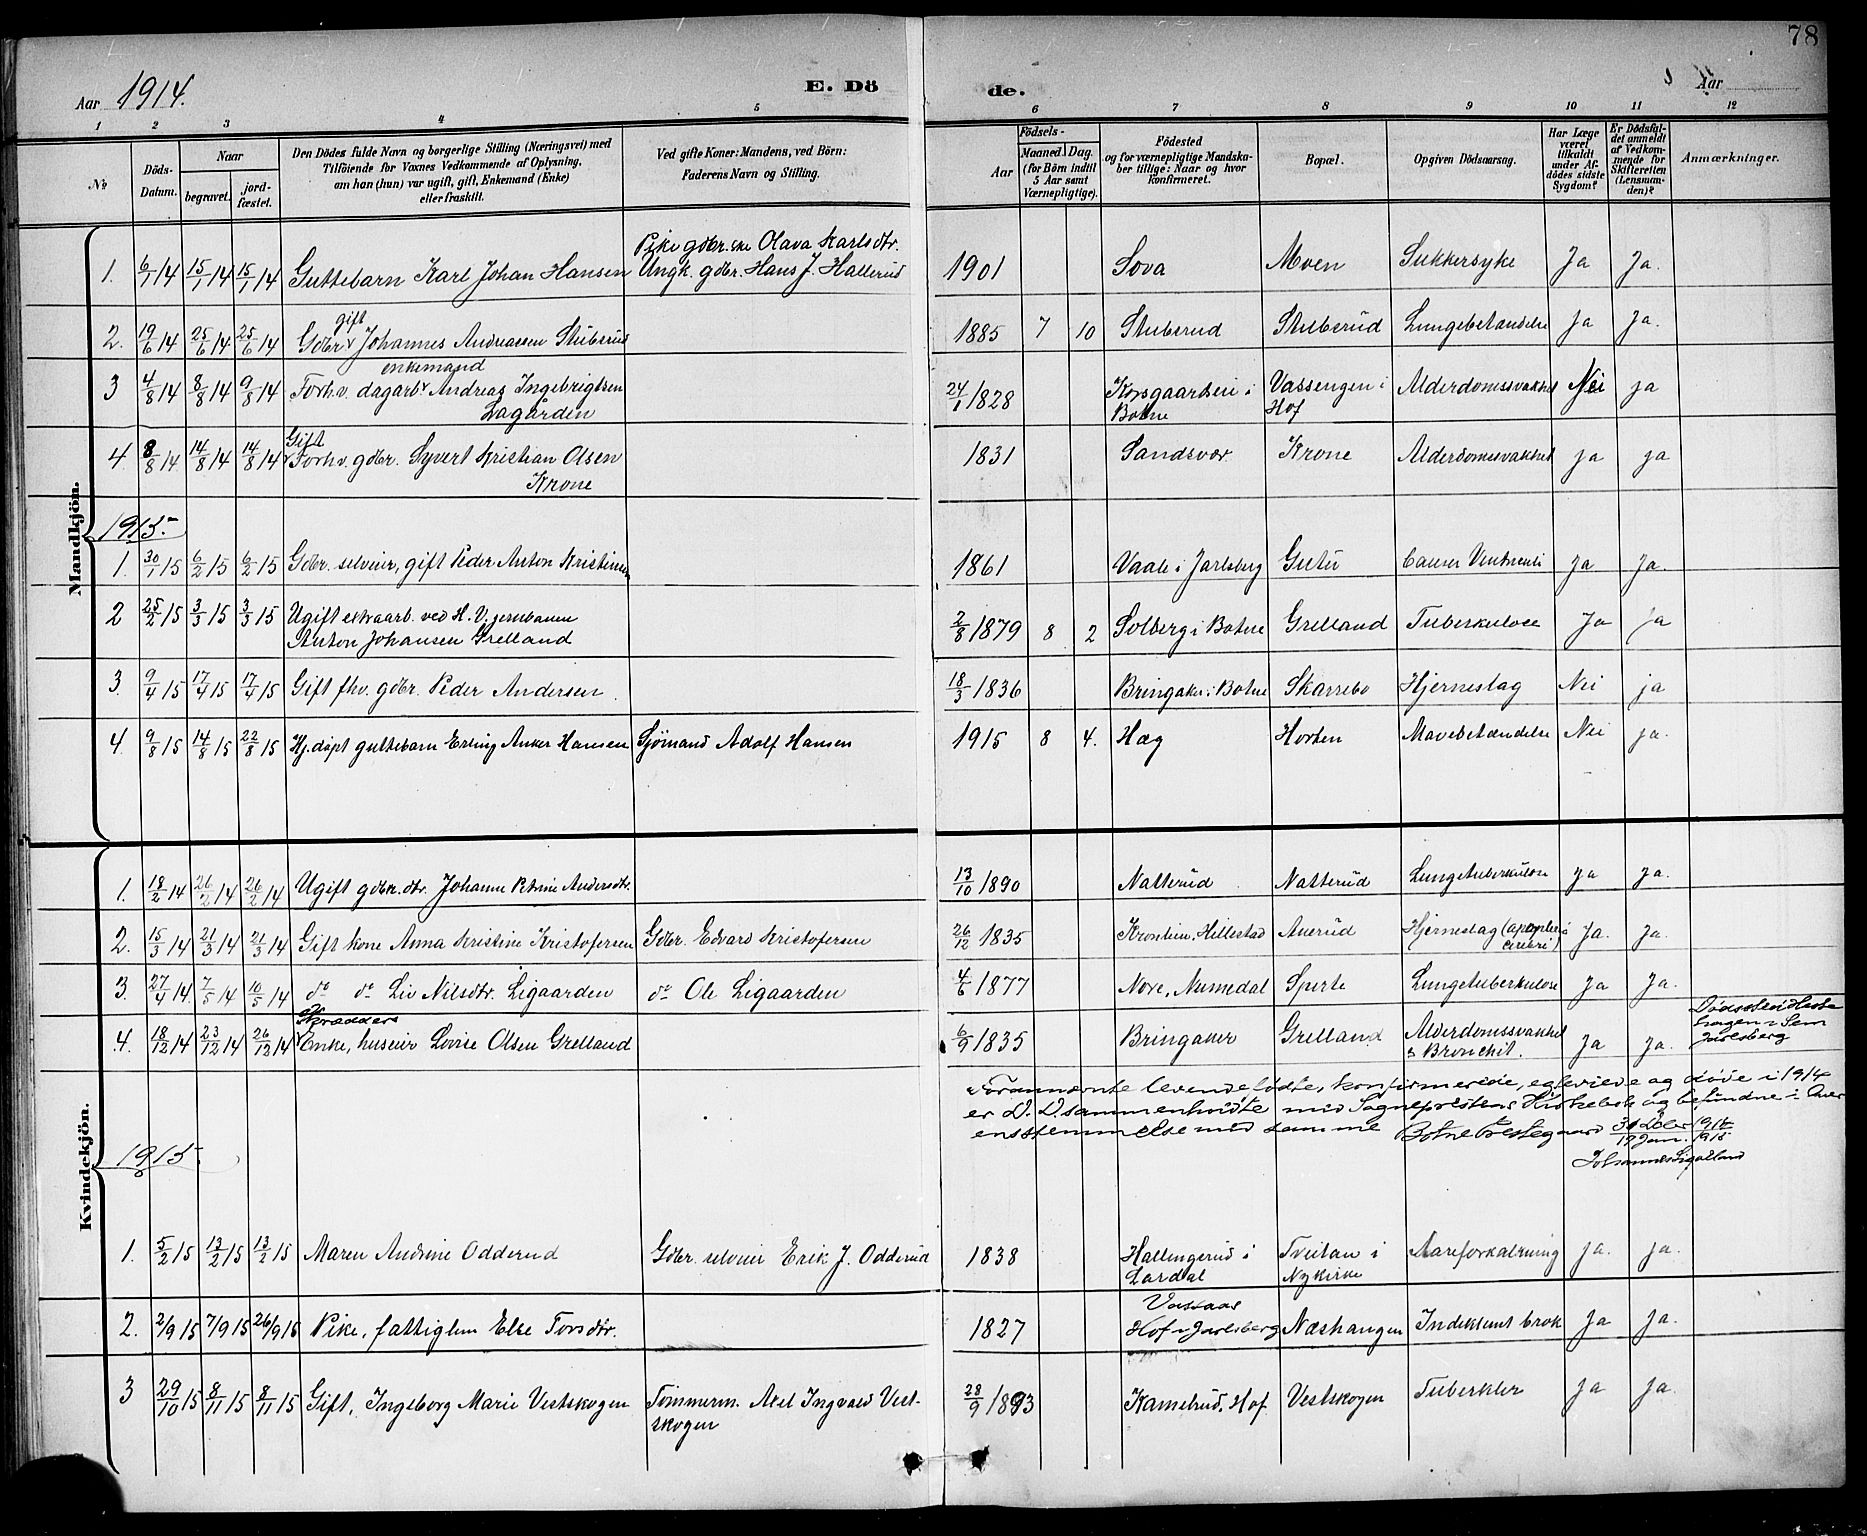 78
Aar 1914.
E. Dö
de.
Aar
1 2 3 4 5 6 7 8 9 10 11 12
No
Döds-Datum.
Naar
begravet.
jord-fæstet.
Den Dödes fulde Navn og borgerlige Stilling (Næringsvei) med
Tilföiende for Voxnes Vedkommende af Oplysning,
om han (hun) var ugift, gift, Enkemand (Enke)
eller fraskilt.
Ved gifte Koner: Mandens, ved Börn:
Faderens Navn og Stilling.
Födsels-
Aar
Maaned. Dag.
(for Börn indtil
5 Aar samt
Værnepligtige).
Födested
og for værnepligtige Mandska-
ber tillige: Naar og hvor
konfirmeret.
Bopæl.
Opgiven Dödsaarsag.
Har Læge
været
tilkaldt
under Af-
dödes sidste
Sygdom?
Er Dödsfal-
det anmeldt
af Vedkom-
mende for
Skifteretten
(Lensman-
den)?
Anmærkninger.
Mandkjön.
Pike gdbr.ske Olava Karlsdtr.
1. 6/1 14 15/1 14 15/1 14 Guttebarn Karl Johan Hansen Ungk. gdbr. Hans J. Hallerud 1901 Sova Moen Sukkersyke Ja Ja.
gift
2. 19/6 14 25/6 14 25/6 14 Gdbr Johannes Andreassen Stubsrud 1885 7 10 Stubsrud Stubsrud Lungebetændelse Ja Ja.
enkemand
3 4/8 14 8/8 14 9/8 14 Forhv. dagarbr Andreas Ingebrigtsen 24/1 1828 Korsgaarden i Vassengen i Alderdomssvakhet Nei ja
Lagården Botne Hof
Gift
4. 8/8 14 14/8 14 14/8 14 Forhv. gdbr. Syvert Kristian Olsen 1831 Sandsvær Krone Alderdomssvakhet ja ja
Krone
1915
1. 30/1 15 6/2 15 6/2 15 Gdbr. selveier, gift Peder Anton Kristinsen 1861 Vaale i Jarlsberg Gutu Cancer Ventriculi Ja Ja.
2 25/2 15 3/3 15 3/3 15 Ugift extraarb. ved H. V. jernbanen
Anton Johansen Grelland 2/8 1879 8 2 Solberg i Botne Grelland Tuberkulose Ja Ja
3. 9/4 15 17/4 15 17/4 15 Gift fhv. gdbr. Peder Andersen 18/3 1836 Bringaker i Botne Skarrebo Hjerneslag Nei ja
4. 9/8 15 14/8 15 22/8 15 Hj.døpt guttebarn Erling Anker Hansen Sjømand Adolf Hansen 1915 8 4. Hæg Horten Mavebetændelse Nei ja.
Kvindekjön.
1. 18/2 14 26/2 14 26/2 14 Ugift gdbr.dtr. Johanne Petrine Andersdtr. 13/10 1890 Natterud Natterud Lungetuberkulose Ja Ja.
2. 15/3 14 21/3 14 21/3 14 Gift kone Anna Kristine Kristofersen Gdbr. Edvard Kristofersen 26/12 1835 Kronlien, Hillestad Auerud Hjerneslag (apoplexia Ja. Ja.
cerebri)
3. 27/4 14. 7/5 14 10/5 14 do do Liv Nilsdtr. Ligaarden do Ole Ligaarden 4/6 1877 Nore, Numedal Sperte Lungetuberkulose Ja Ja.
Skrædder
4. 18/12 14 23/12 14 26/12 14 Enke, huseier Lovise Olsen Grelland 6/9 1835 Bringaker Grelland Alderdomssvakhet
& Bronchit. Ja Ja.
Dødssted Heste
hagen i Sem
Jarlsberg
Forannævnte levendefødte, konfirmerede, egteviede og døde i 1914
er D. D. sammenholdte med Sogneprestens Kirkebok og befundne i Over
ensstemmelse med samme Botne Prestegaard 31 Decbr 1914
17 Jan. 1915
Johannes Sigalland
1915
1. 5/2 15 13/2 15 13/2 15 Maren Andrine Odderud Gdbr. selveier Erik J. Odderud 1838 Hallingerud i Tveitan i Aareforkalkning ja. ja.
Lardal Nykirke
2. 2/9 15 7/9 15 26/9 15 Pike, fattiglem Else Torsdtr. 1827 Vassaas
Hof i Jarlsberg Næshangen Indeklemt brok Ja Ja.
3 29/10 15 8/11 15 8/11 15 Gift, Ingeborg Marie Vestskogen Tømmerm. Axel Ingvald Vest-
skogen 28/9 1893 Kamelrud, Hof Vestskogen Tuberkler Ja Ja.